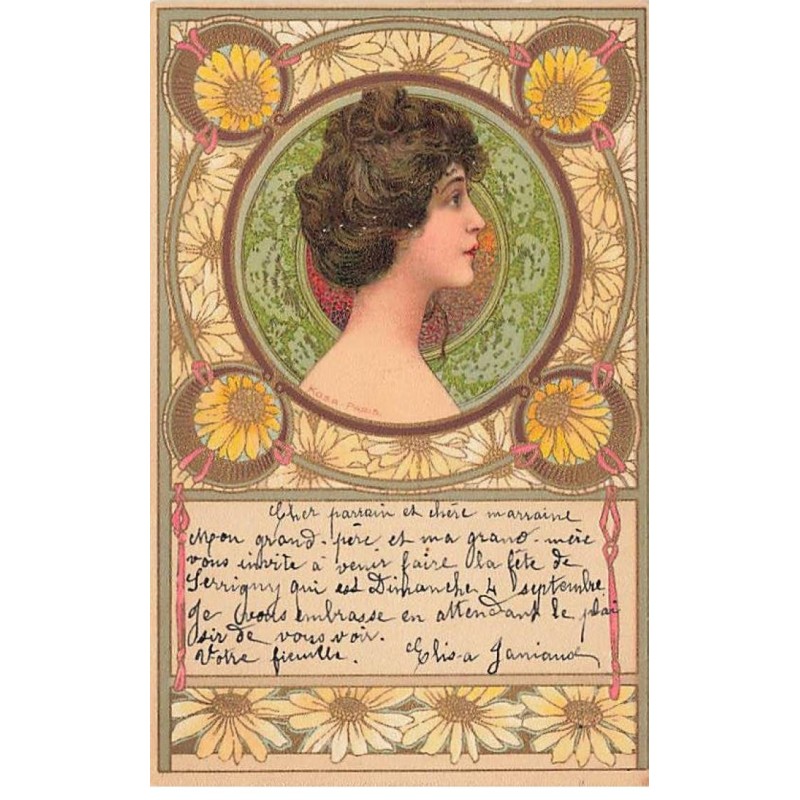 Kosa-Paris.
Cher parrain et chère marraine
Mon grand-père et ma grand-mère
vous invite à venir faire la fête de
Serrigny qui est Dimanche 4 septembre.
Je vous embrasse en attendant le plai
sir de vous voir.
Votre fieuille. Elisa Janiaud